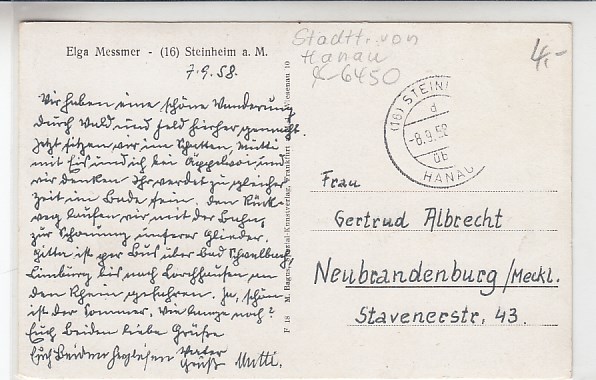 Elga Messmer - (16) Steinheim a. M.
7.9.58.
Wir haben eine schöne Wanderung
durch Wald und Feld hierher gemacht.
Jetzt sitzen wir im Schatten, Mutti
mit Eis und ich bei Äppelwoi und
wir denken Ihr werdet zu gleicher
Zeit im Bade sein. Den Rück-
weg laufen wir mit der Bahn,
zur Schonung unserer Glieder.
Gitta ist per Bus über Bad Schwalbach,
Limburg bis nach Lorchhausen an
den Rhein gefahren. Ja, schön
ist der Sommer, wie lange noch?
Euch Beiden liebe Grüße
Vater
Euch Beiden herzlichen Gruß Mutti.
F 18 M. Bagus, Spezial-Kunstverlag, Frankfurt Wiesenau 10
Stadttr. von
Hanau
6450
4,-
(16) STEINH
d
-8.9.58
HANAU
Frau
Gertrud Albrecht
Neubrandenburg/Meckl.
Stavenerstr, 43.